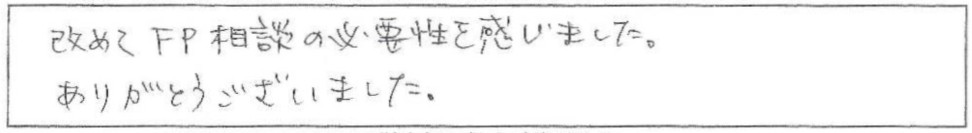 改めてFP相談の必要性を感じました。
ありがとうございました。